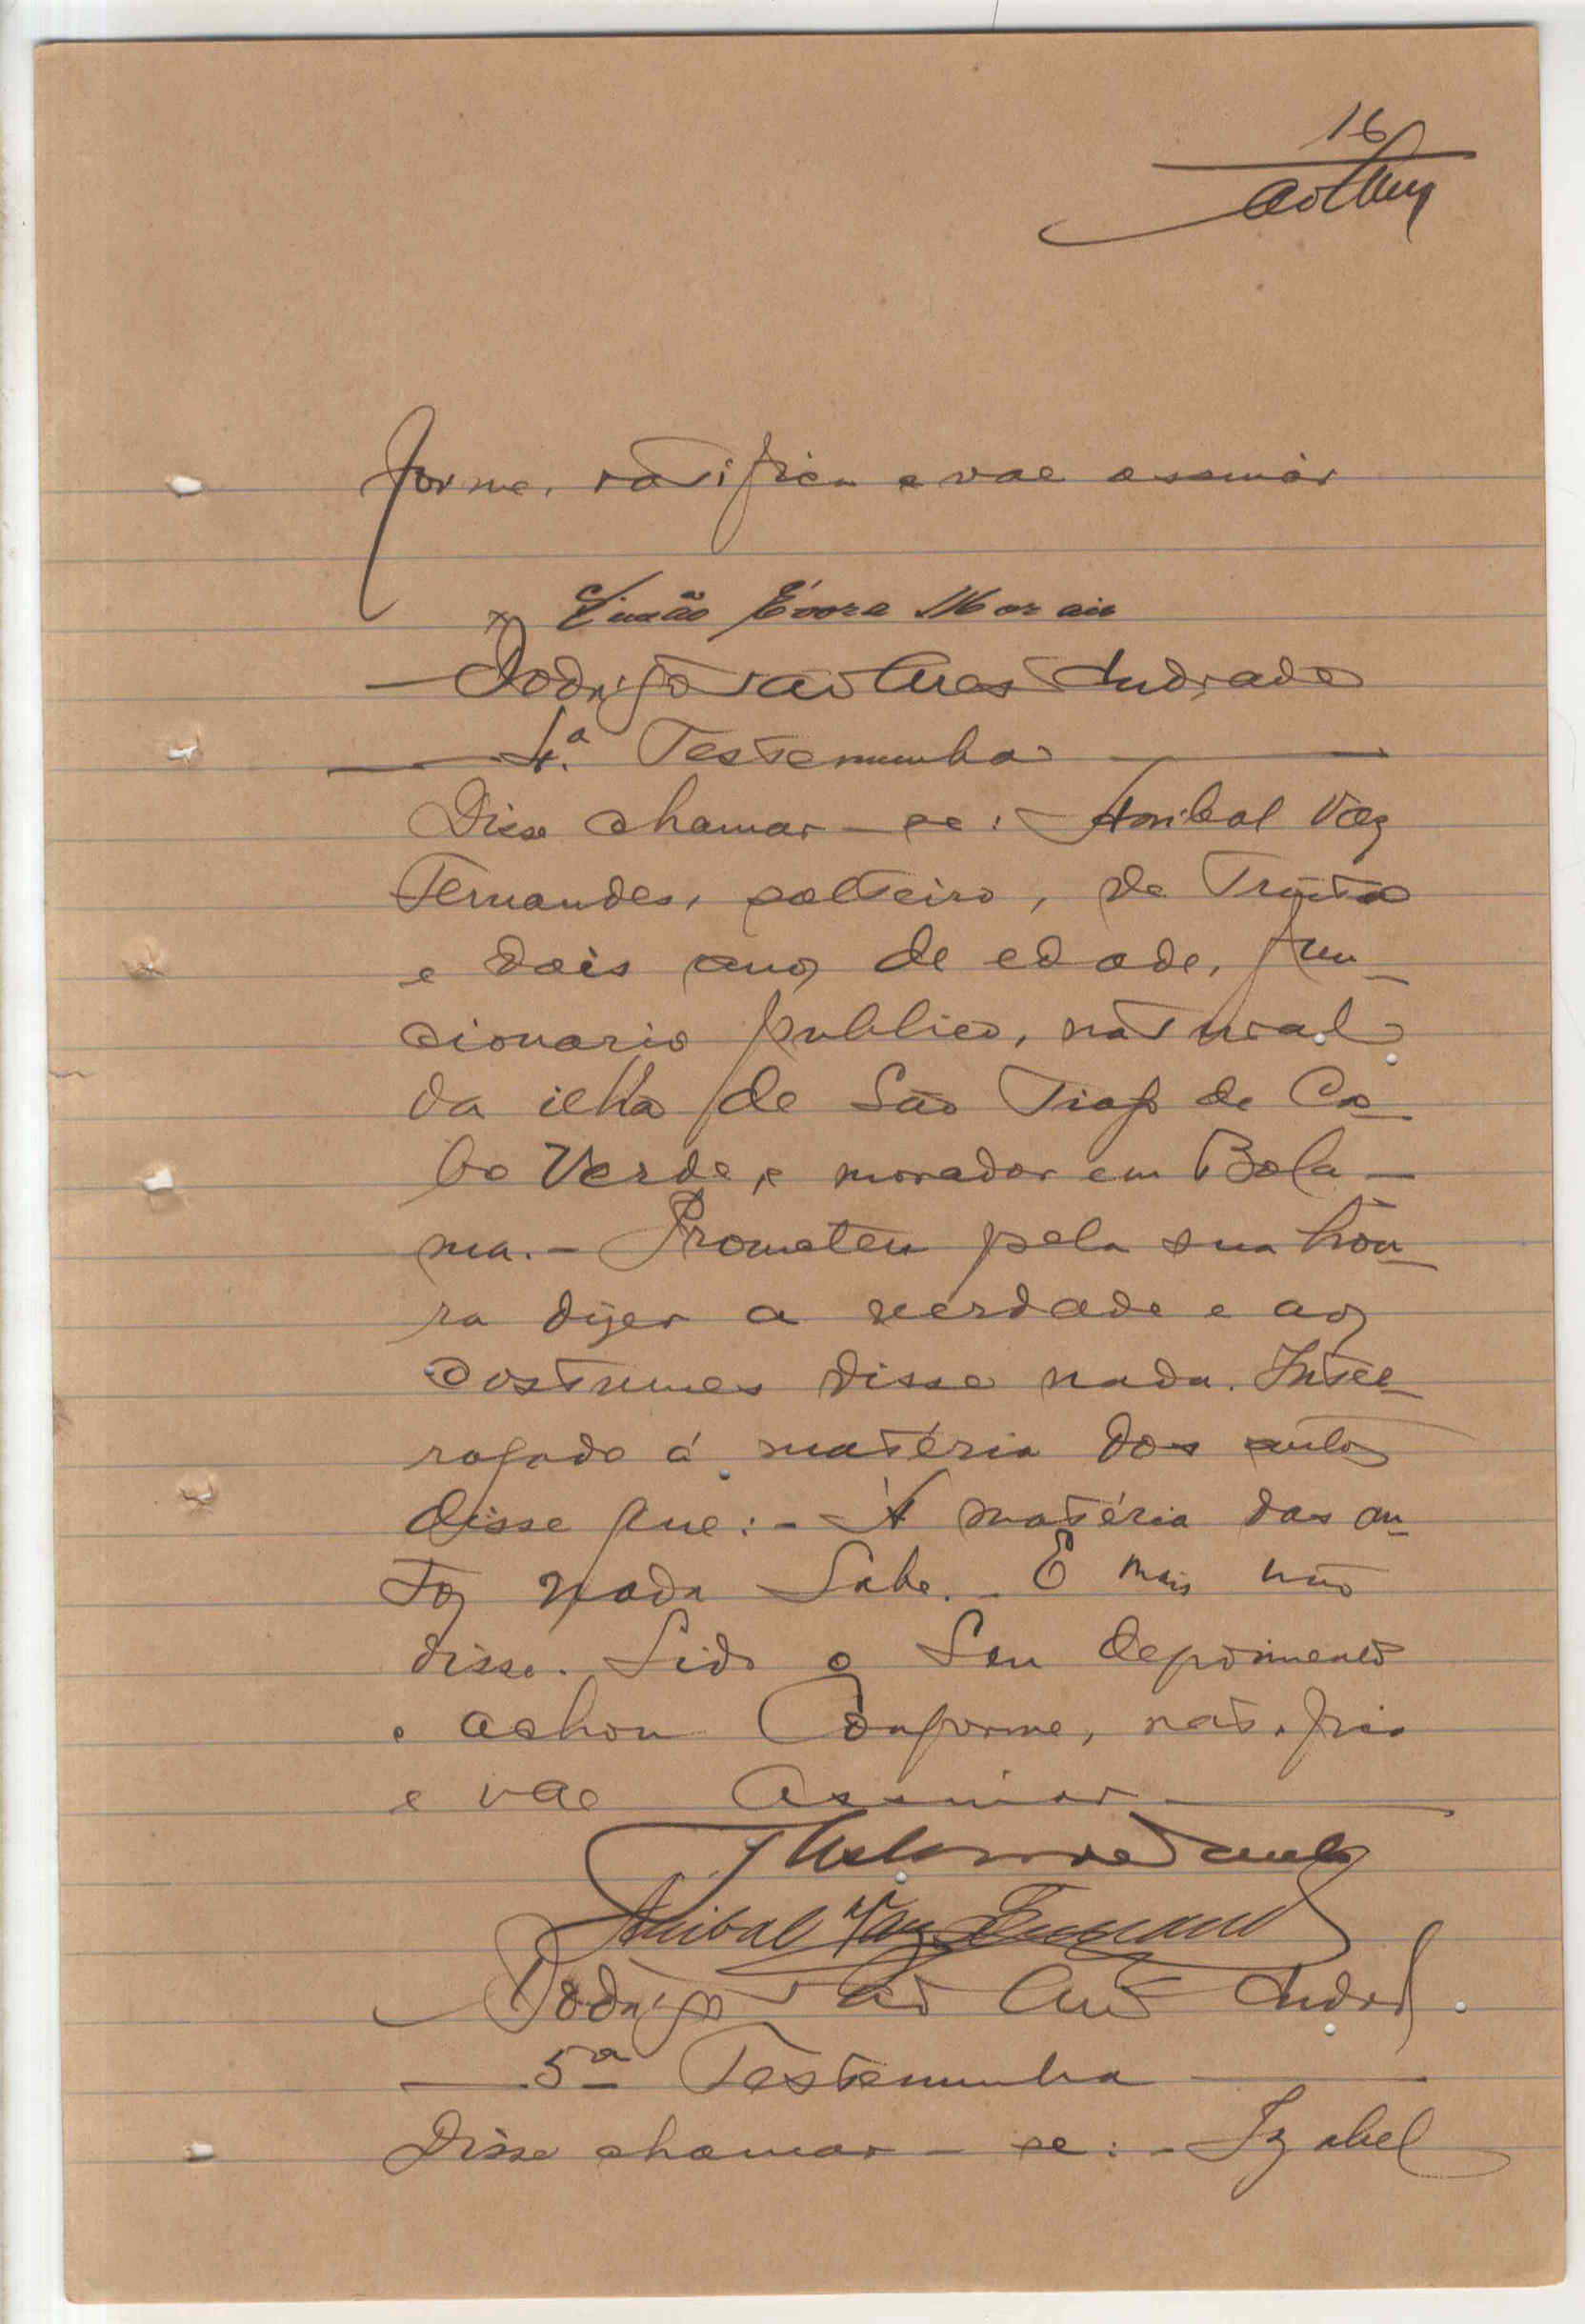 16
forme, ratifica e vae assinar
x Simão Évora Morais
Rodrigo Andrade
4.ª Testemunha
Disse chamar-se: Anibal Vaz
Fernandes, solteiro, de Trinta
e dois anos de edade, fun-
cionario publico, natural
da ilha de São Tiago de Ca-
bo Verde, e morador em Bola-
ma. - Prometeu pela sua hon-
ra dizer a verdade e aos
costumes disse nada. Inter-
rogado á matéria dos autos
disse que: - A matéria dos au-
tos nada Sabe. - E mais não
disse. Lido o Seu depoimento
e achou Conforme, ratifica
e vae assinar
Anibal Vaz Fernandes
Rodrigo
5ª Testemunha
Disse chamar-se: - Izabel